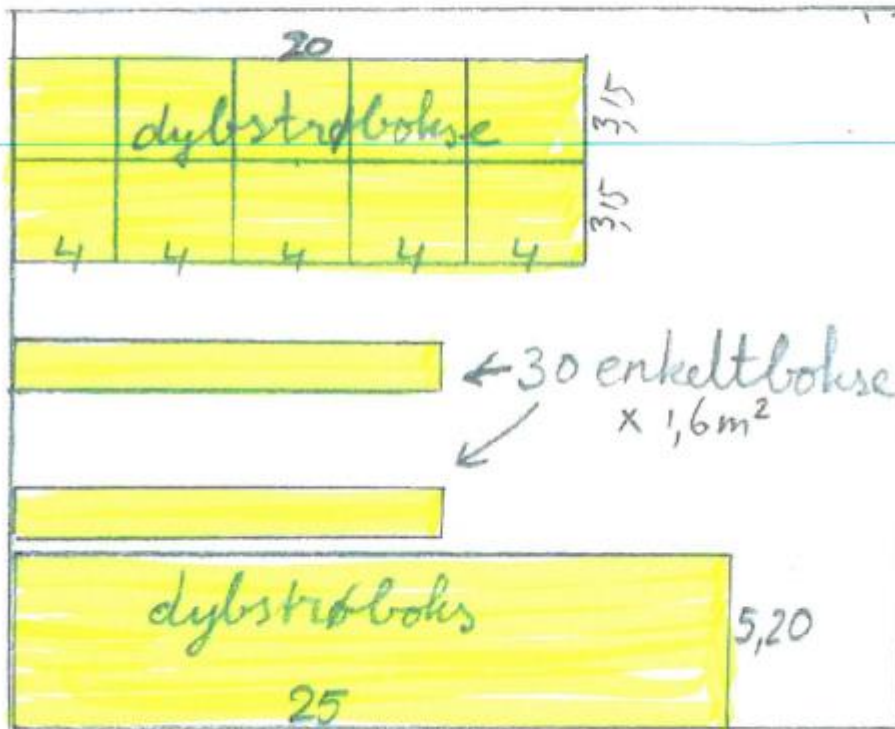 20
dybstrøbokse
3,15
3,15
4 4 4 4 4
←30 enkeltbokse
x 1,6m²
dybstrøboks
5,20
25